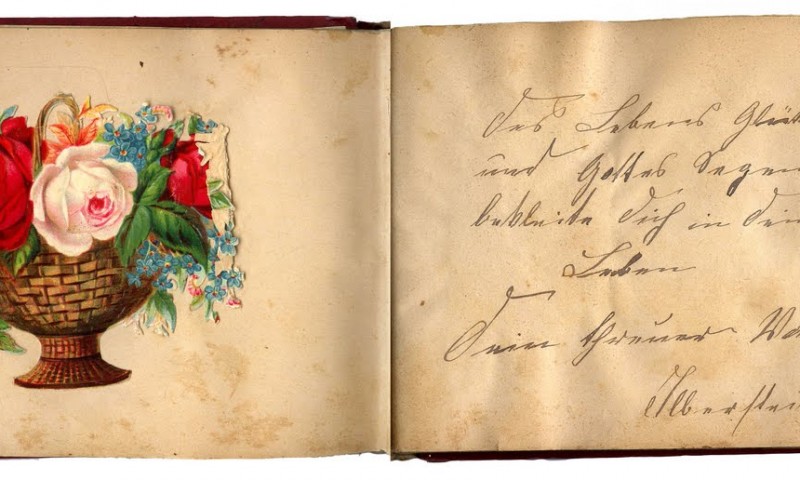 Des Lebens Glü
und Gottes Segen
bekleite Dich in Dei
Leben
Dein threuer
Ilberstei